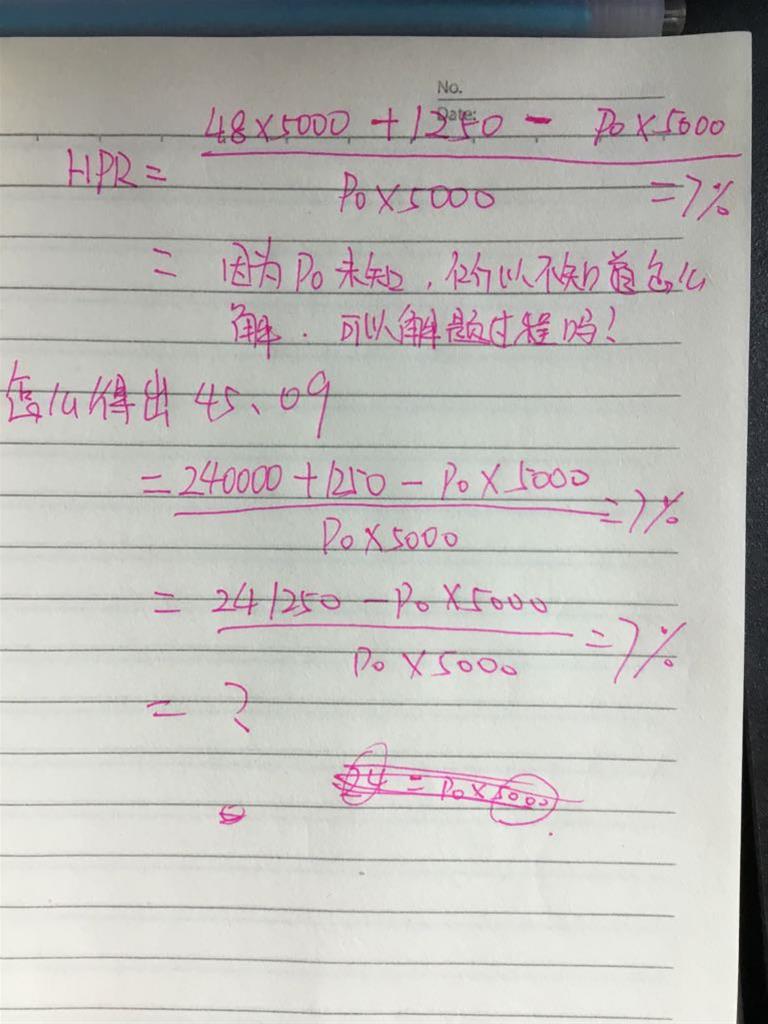 No.
Date:
48×5000 + 1250 - P0×5000
HPR = ―――――――――― = 7%
P0×5000
= 因为P0未知,所以不知道怎么
解. 可以解题过程吗?
怎么得出 45、09
= 240000 + 1250 - P0×5000
―――――――――― = 7%
P0×5000
= 241250 - P0×5000
―――――――――― = 7%
P0×5000
= ?
24 = P0×5000